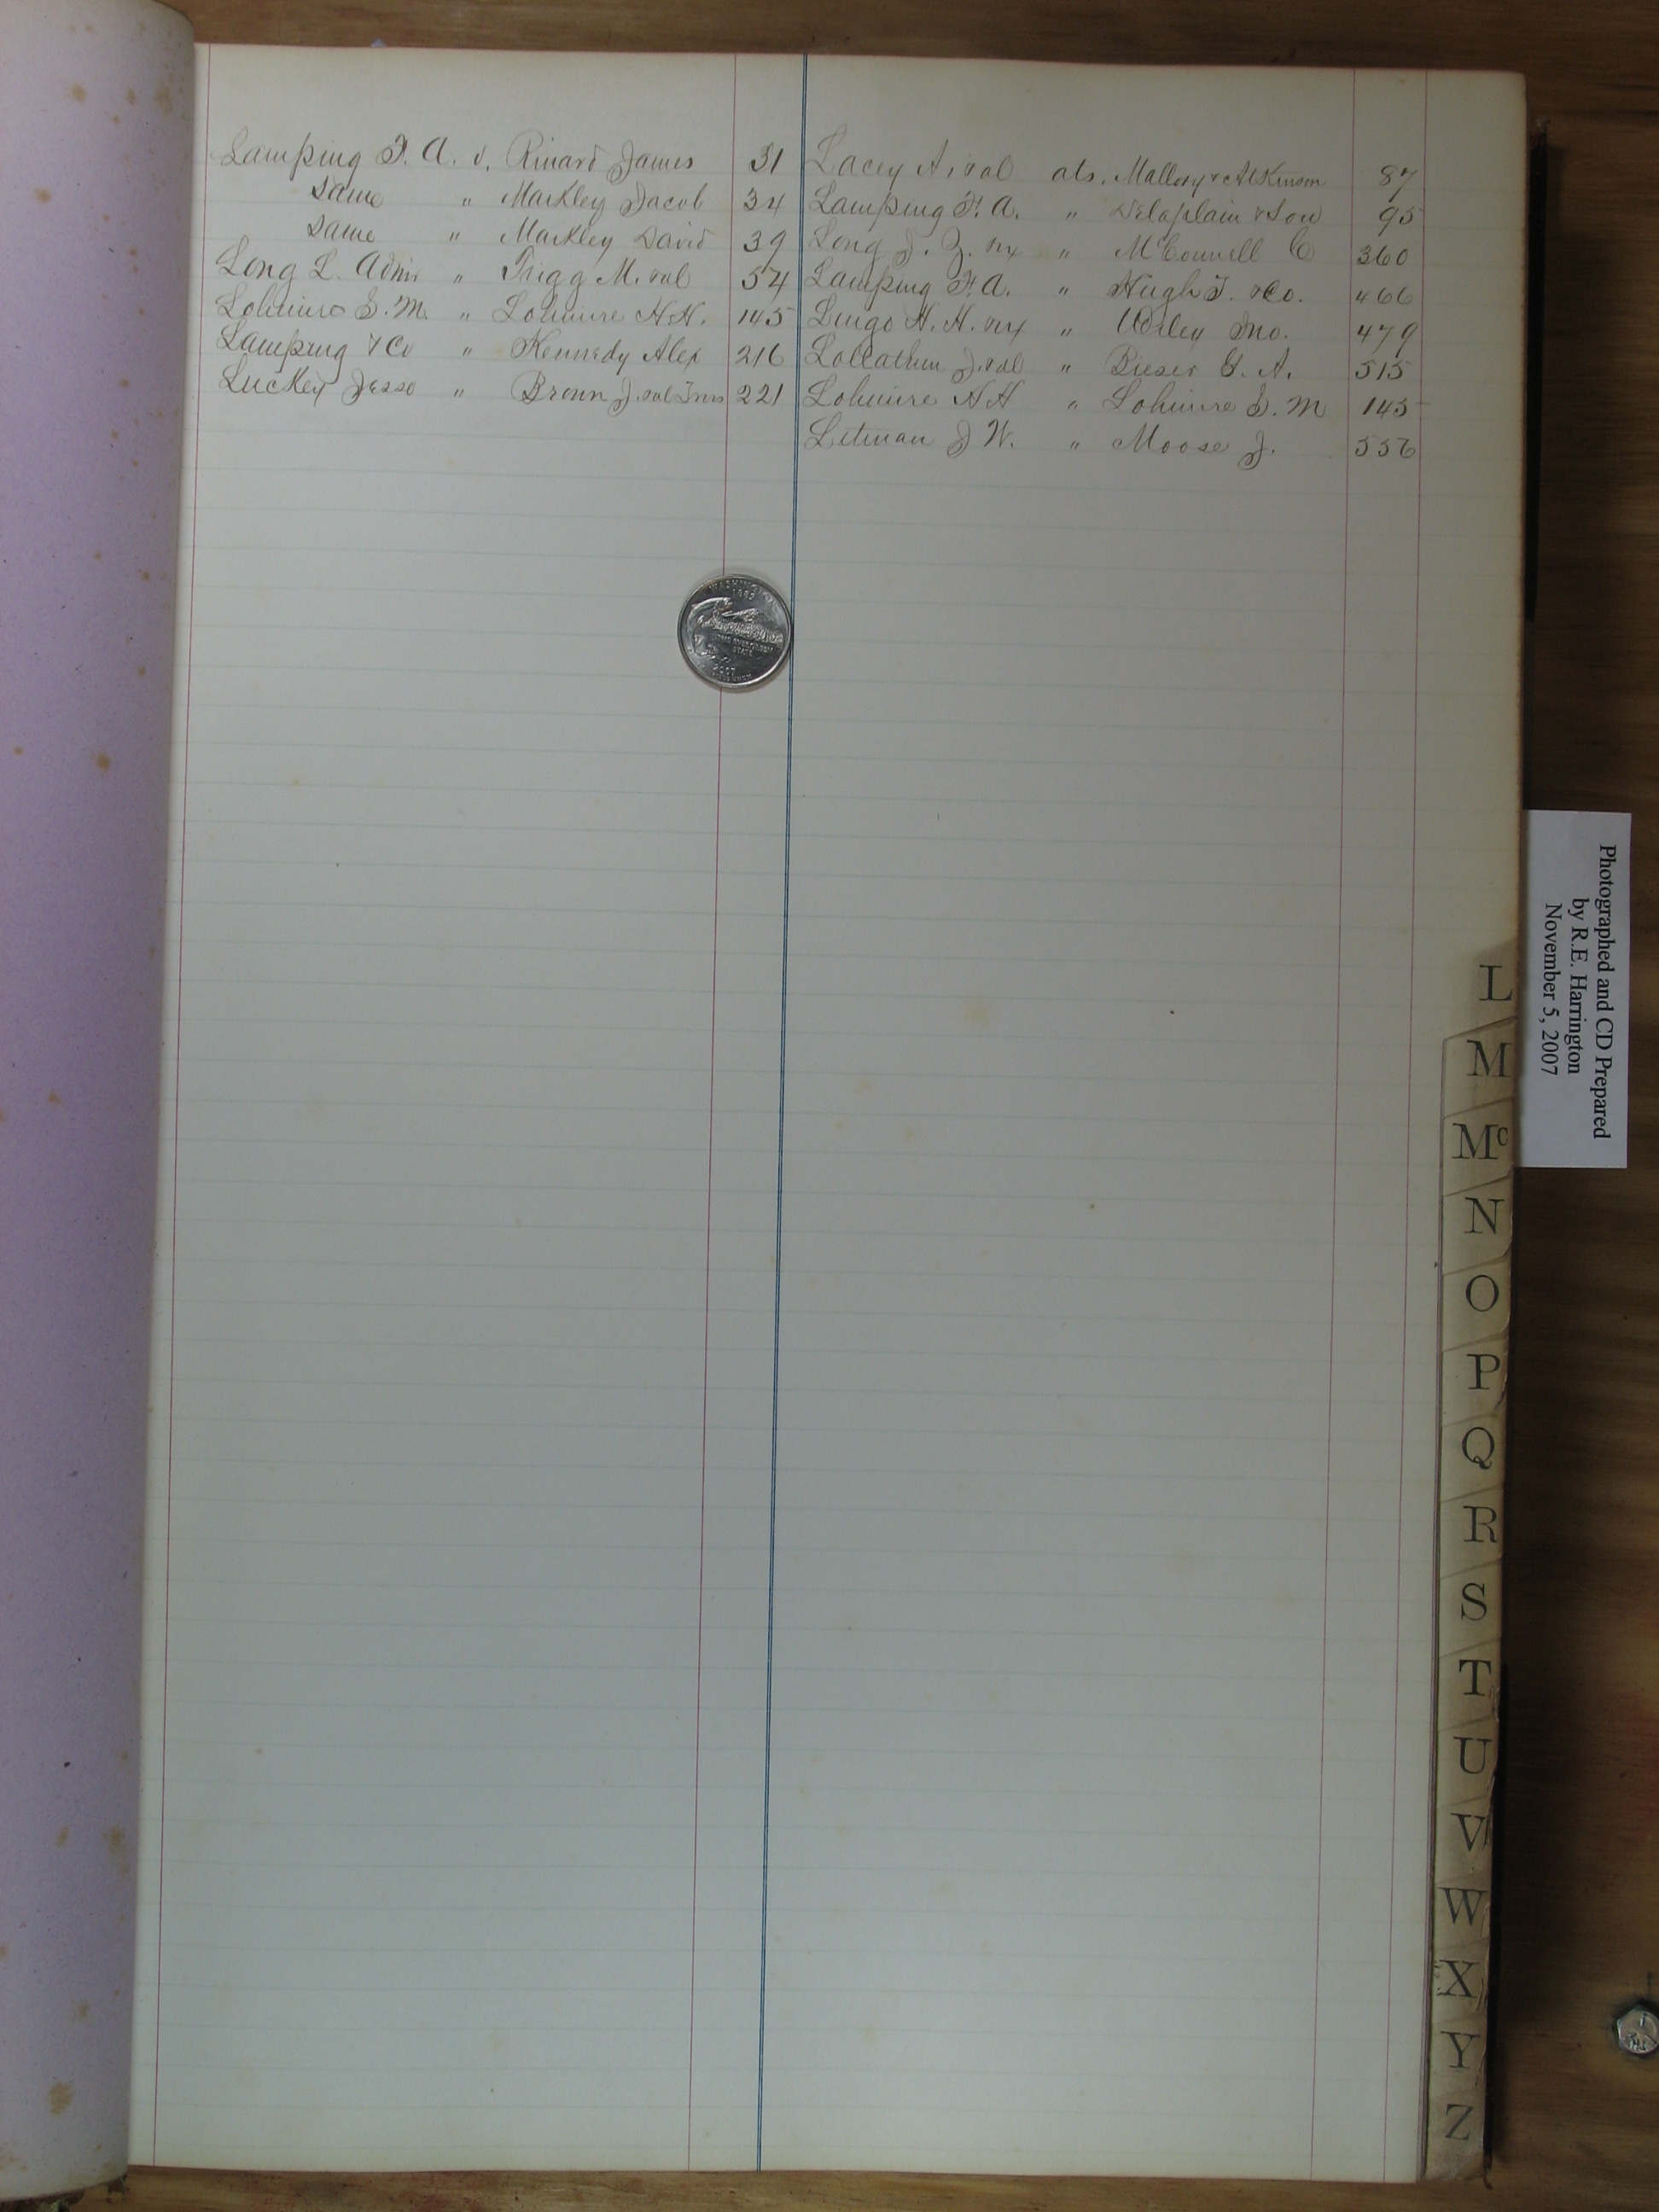 Lamping F. A. v. Rinard James 31
Same " Markley Jacob 34
Same " Markley David 39
Long L. Admr " Trigg M. et al 54
Lohmire S. M. " Lohmire H.H. 145
Lamping & Co " Kennedy Alex 216
Luckey Jesse " Brown J. et al 221
Lacey A. et al ats. Mallory & Atkinson 87
Lamping F. A. " Delaplain & Son 95
Long J. Z. " McConnell C 360
Lamping F. A. " Hugh T. & Co. 466
Lingo H. H. " Wiley Jno. 479
J. et al " Bieser G. A. 515
Lohmire H H " Lohmire S. M 145
Litman J W. " Moose J. 556
WASHINGTON
2007
L
M
Mc
N
O
P
Q
R
S
T
U
V
W
X
Y
Z
Photographed and CD Prepared
by R.E. Harrington
November 5, 2007